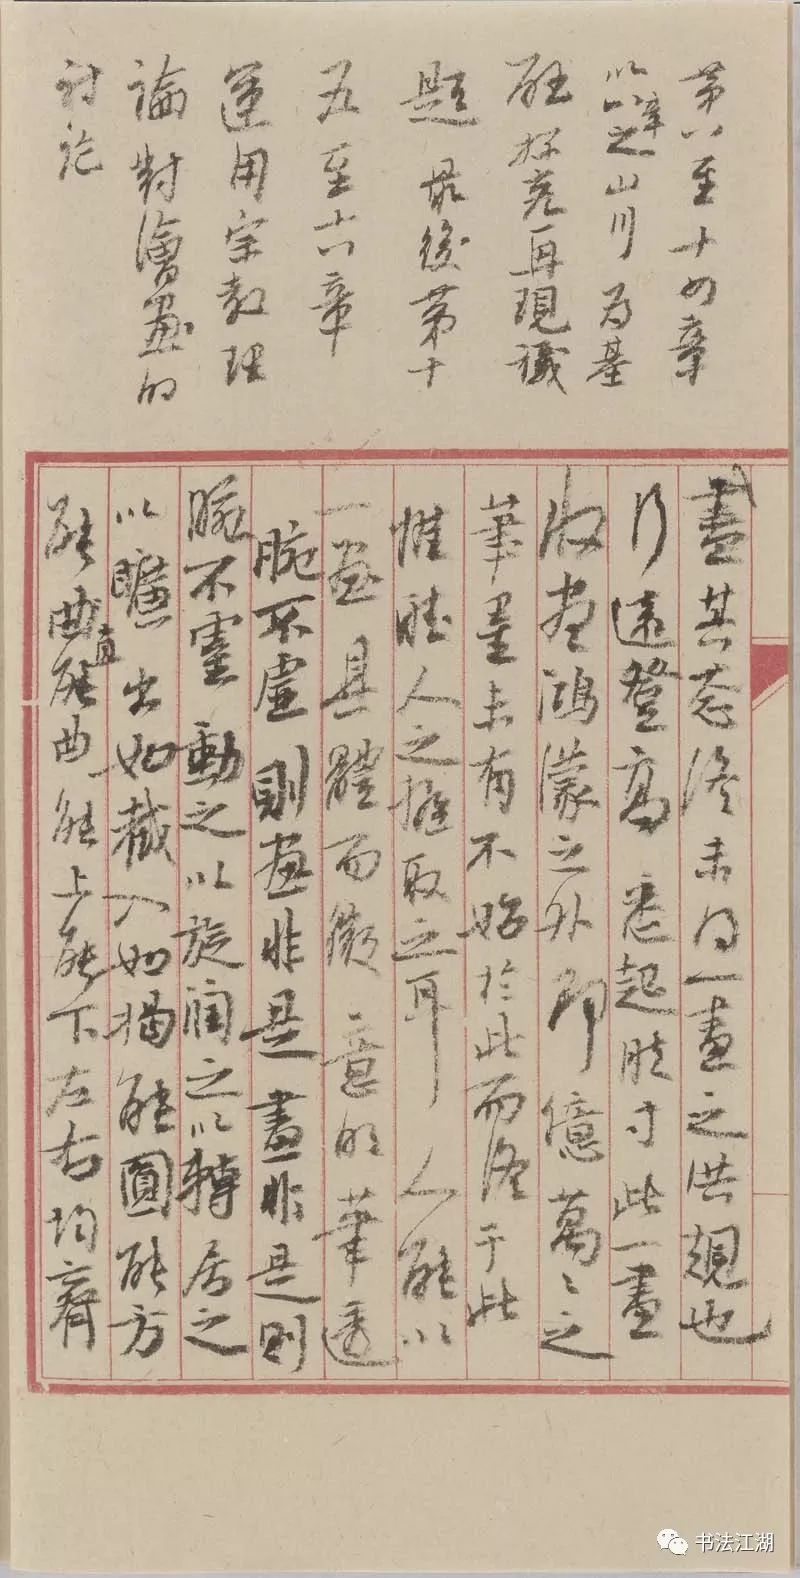 第八至十四章
山川為基
礎探究再現議
題 最後第十
五至十八章
運用宗教理
論對繪畫的
討論
盡其態終未得一畫之洪規也
行遠登高悉起膚寸此一畫
收畫鴻濛之外即億萬〻之
筆墨未有不始於此而終于此
惟聽人之握取之耳 人能以
一畫具體而微 意明筆透
腕不虛則畫非是畫非是則
腕不靈動之以旋潤之以轉居之
以曠出如截入如揭能圓能方
能直能曲能上能下左右均齊
书法江湖